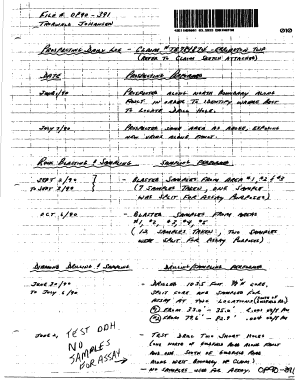 FILE # OP90-391
THORVALD JOHANSEN
010
PROSPECTING DAILY LOG - CLAIM # TWP
(REFER TO CLAIM SKETCH ATTACHED)
DATE
PROSPECTING PERFORMED
JUNE 1/90
PROSPECTED ALONG NORTH BOUNDARY ALONG
FAULT IN ORDER TO IDENTIFY WHERE BEST
TO LOCATE DRILL HOLE.
JULY 7/90
PROSPECTED SAME AREA AS ABOVE, EXPOSING
NEW VEINS ALONG FAULT.
ROCK BLASTING & SAMPLING
SAMPLING PERFORMED
SEPT 2/90
TO SEPT 3/90
- BLASTED SAMPLES FROM AREA #1, #2 & #3
(7 SAMPLES TAKEN, ONE SAMPLE
WAS SPLIT FOR ASSAY PURPOSES)
OCT 6/90
- BLASTED SAMPLES FROM AREAS
#1, #2, #3, #4, #5
(12 SAMPLES TAKEN, TWO SAMPLES
WERE SPLIT FOR ASSAY PURPOSES)
DIAMOND DRILLING & SAMPLING
DRILLING/SAMPLING PERFORMED
JUNE 30/90
TO JULY 6/90
- DRILLED 103.5 FT CORE,
SPLIT CORE AND SAMPLED FOR
ASSAY AT TWO LOCATIONS
FROM
FROM
JUNE
TEST DDH
NO
SAMPLES
FOR ASSAY
- TEST DRILL TWO SHORT HOLES
(ONE NORTH OF EMERALD ALONG FAULT
AND ONE SOUTH OF EMERALD ALONG
NORTH BOUNDARY OF CLAIM)
- NO SAMPLES USED FOR ASSAY.
OP90-391